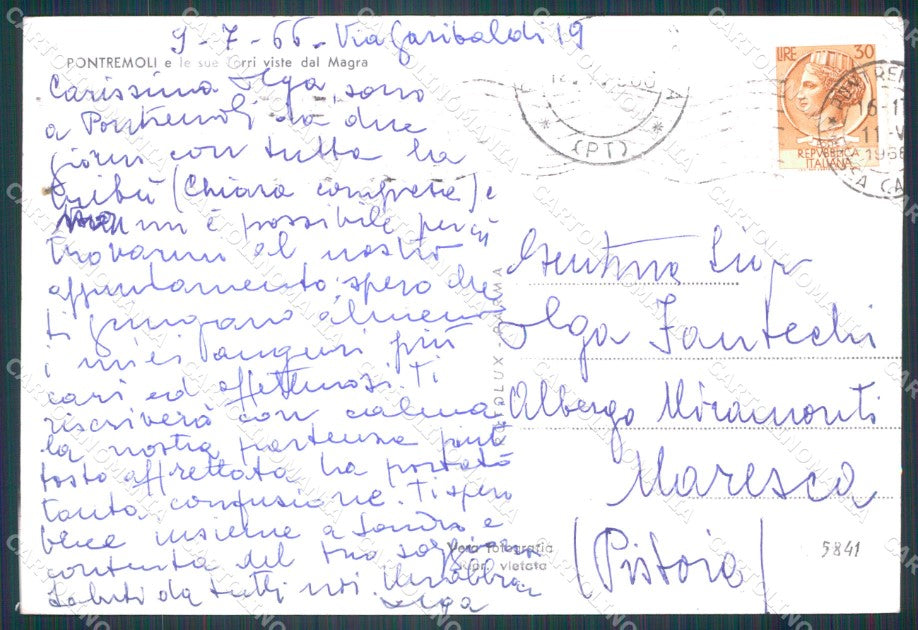 9-7-66. Via Garibaldi 19
PONTREMOLI e le sue Torri viste dal Magra
Carissima Olga, sono
a Pontremoli da due
giorni con tutta la
tribù (Chiara compresa) e
non mi è possibile perciò
trovarmi al nostro
appuntamento; spero che
ti giungano almeno
i miei auguri più
cari ed affettuosi. Ti
riscriverà con calma
la nostra partenza piut
tosto affrettata ha portato
tanta confusione. Ti spero
bene insieme a Sandra e
contenta del tuo soggiorno.
Saluti da tutti noi. Un abbra
Olga
LIRE 30
REPVBBLICA
ITALIANA
PONTREM
16-17
11-V
1966
(PT)
Gentma Sig
Olga Fantechi
Albergo Miramonti
Maresca
(Pistoia)
Vera fotografia
Ripr. vietata
5841
CARTOLINOMANIA